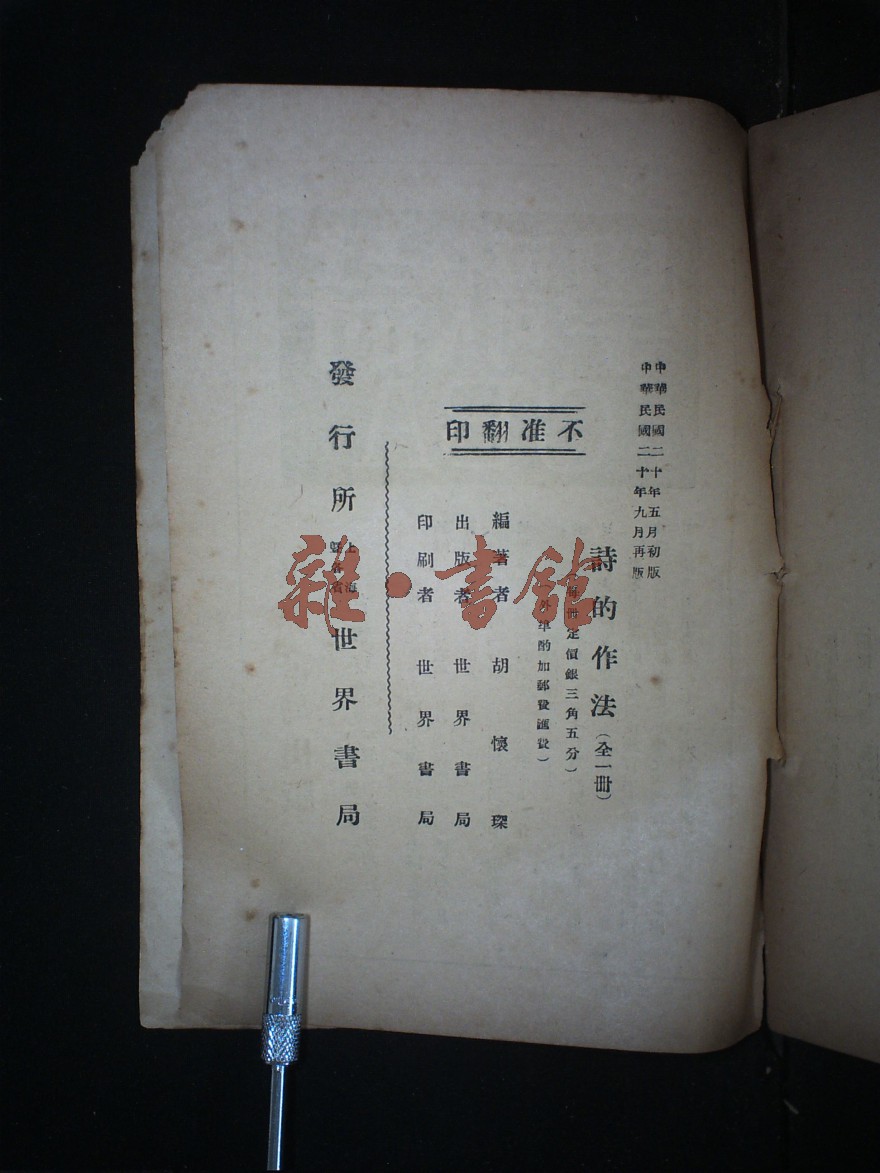 中華民國二十年五月初版
中華民國二十年九月再版
詩的作法(全一冊)
每冊定價銀三角五分)
外埠酌加郵費滙費)
不准翻印
編著者 胡懷琛
出版者 世界書局
印刷者 世界書局
發行所 上海 各省 世界書局
雜·書館